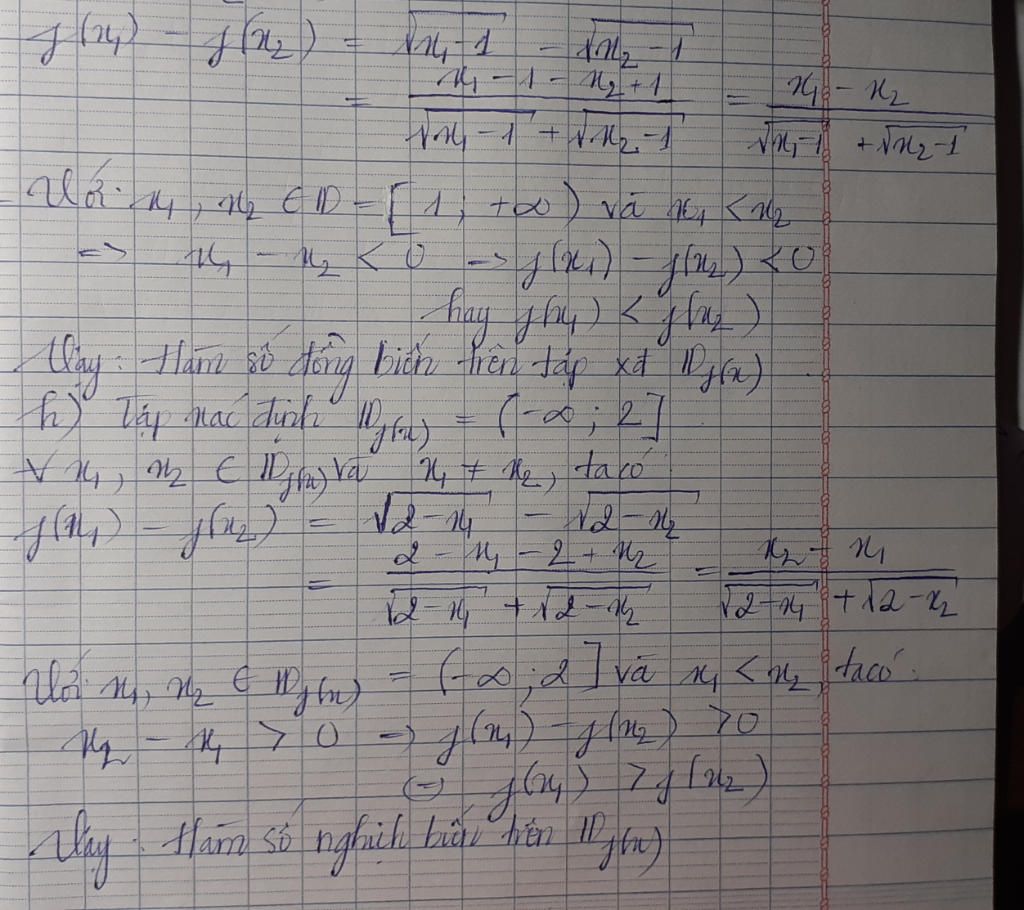 f(x₁) - f(x₂) = √(x₁-1) - √(x₂-1)
= (x₁ - 1 - x₂ + 1)/(√(x₁-1) + √(x₂-1)) = (x₁ - x₂)/(√(x₁-1) + √(x₂-1))
Với: x₁, x₂ ∈ D = [1; +∞) và x₁ < x₂
=> x₁ - x₂ < 0 => f(x₁) - f(x₂) < 0
hay f(x₁) < f(x₂)
Vậy: Hàm số đồng biến trên tập xđ D_f(x)
h) Tập xác định D_f(x) = (-∞; 2]
∀ x₁, x₂ ∈ D_f(x) và x₁ ≠ x₂, ta có
f(x₁) - f(x₂) = √(2-x₁) - √(2-x₂)
= (2 - x₁ - 2 + x₂)/(√(2-x₁) + √(2-x₂)) = (x₂ - x₁)/(√(2-x₁) + √(2-x₂))
Với: x₁, x₂ ∈ D_f(x) = (-∞; 2] và x₁ < x₂, ta có:
x₂ - x₁ > 0 => f(x₁) - f(x₂) > 0
<=> f(x₁) > f(x₂)
Vậy: Hàm số nghịch biến trên D_f(x)